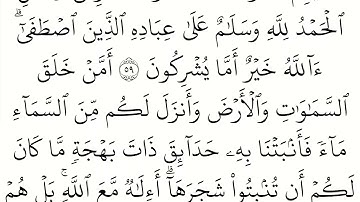 ٱلْحَمْدُ لِلَّهِ وَسَلَٰمٌ عَلَىٰ عِبَادِهِ ٱلَّذِينَ ٱصْطَفَىٰٓۗ
ءَآللَّهُ خَيْرٌ أَمَّا يُشْرِكُونَ ٥٩ أَمَّنْ خَلَقَ
ٱلسَّمَٰوَٰتِ وَٱلْأَرْضَ وَأَنزَلَ لَكُم مِّنَ ٱلسَّمَآءِ
مَآءً فَأَنۢبَتْنَا بِهِۦ حَدَآئِقَ ذَاتَ بَهْجَةٍ مَّا كَانَ
لَكُمْ أَن تُنۢبِتُوا۟ شَجَرَهَآۗ أَءِلَٰهٌ مَّعَ ٱللَّهِۚ بَلْ هُمْ